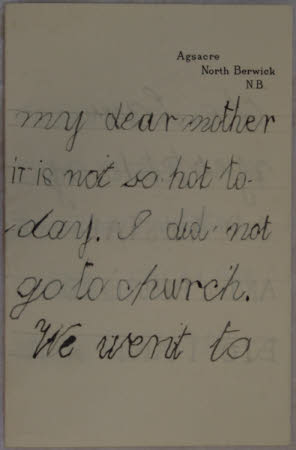 Agsacre
North Berwick
N.B.
my dear mother
it is not so hot to-
-day. I did not
go to church.
We went to